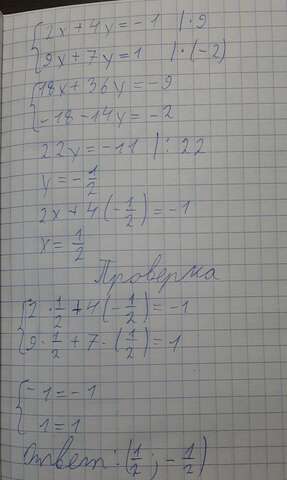 2x + 4y = -1 | · 9
9x + 7y = 1 | · (-2)
18x + 36y = -9
-18 - 14y = -2
22y = -11 | : 22
y = -1/2
2x + 4(-1/2) = -1
x = 1/2
Проверка
2 · 1/2 + 4(-1/2) = -1
9 · 1/2 + 7 · (1/2) = 1
-1 = -1
1 = 1
Ответ: (1/2; -1/2)